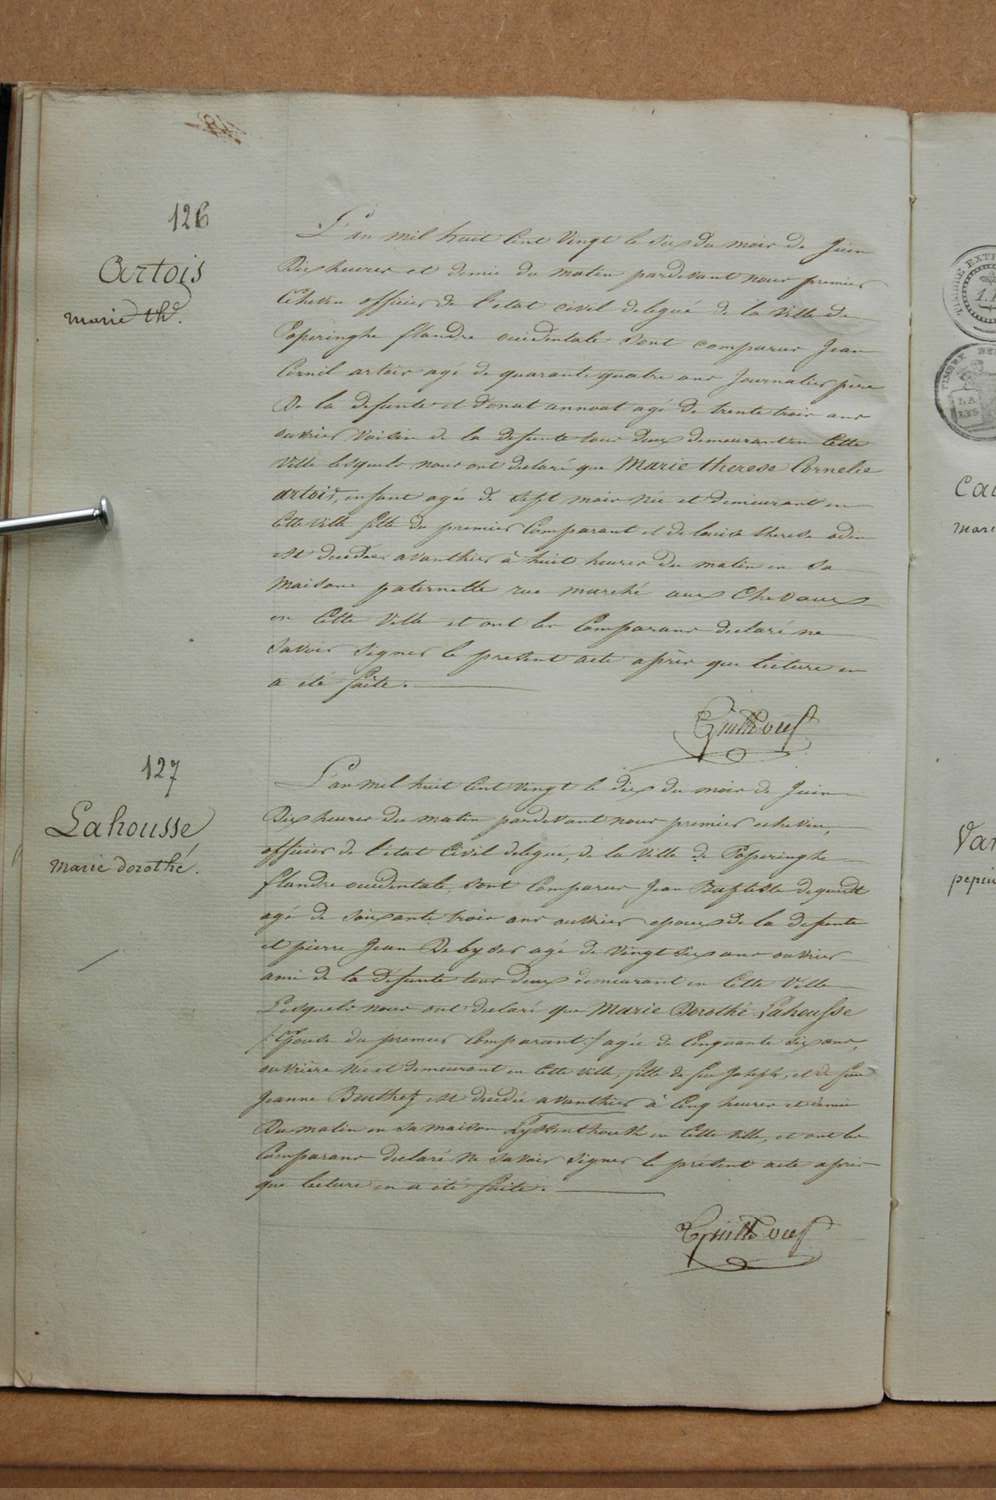 126
Artois
marie thé.
L'an mil huit Cent Vingt le six du mois de Juin
Dix heures et demie du matin pardevant nous premier
Echevin officier de l'etat civil delegué de la Ville de
Poperinghe flandre occidentale sont comparus Jean
Cornil artois agé de quarante quatre ans Journalier père
De la defunte et Donat annoot agé de trente trois ans
ouvrier Voisin de la defunte tous deux demeurant en Cette
Ville lesquels nous ont declaré que Marie therese Cornelie
artois, enfant agée de Sept mois née et demeurant en
Cette Ville fille du premier Comparant et de louise therese
est decedée avanthier à huit heures du matin en sa
maison paternelle rue marché aux Chevaux
en Cette Ville et ont les Comparans declaré ne
savoir signer le present acte après que lecture en
a été faite.
127
Lahousse
marie dorothé.
L'an mil huit Cent vingt le dix du mois de Juin
Dix heures du matin pardevant nous premier echevin,
officier de l'etat Civil delegué, de la Ville de Poperinghe
flandre occidentale, sont Comparus Jean Baptiste
agé de Soixante trois ans ouvrier epoux de la defunte
et pierre Jean Debyser agé de Vingt six ans ouvrier
ami de la defunte tous deux demeurant en Cette Ville
Lesquels nous ont declaré que Marie Dorothé Lahousse
/: Epouse du premier Comparant :/ agée de Cinquante six ans,
ouvrière née et demeurant en Cette Ville, fille de feu Joseph, et de feue
Jeanne est decedée avanthier à Cinq heures et demie
Du matin en sa maison en Cette Ville, et ont les
Comparans declaré ne savoir signer le présent acte après
que lecture en a été faite.